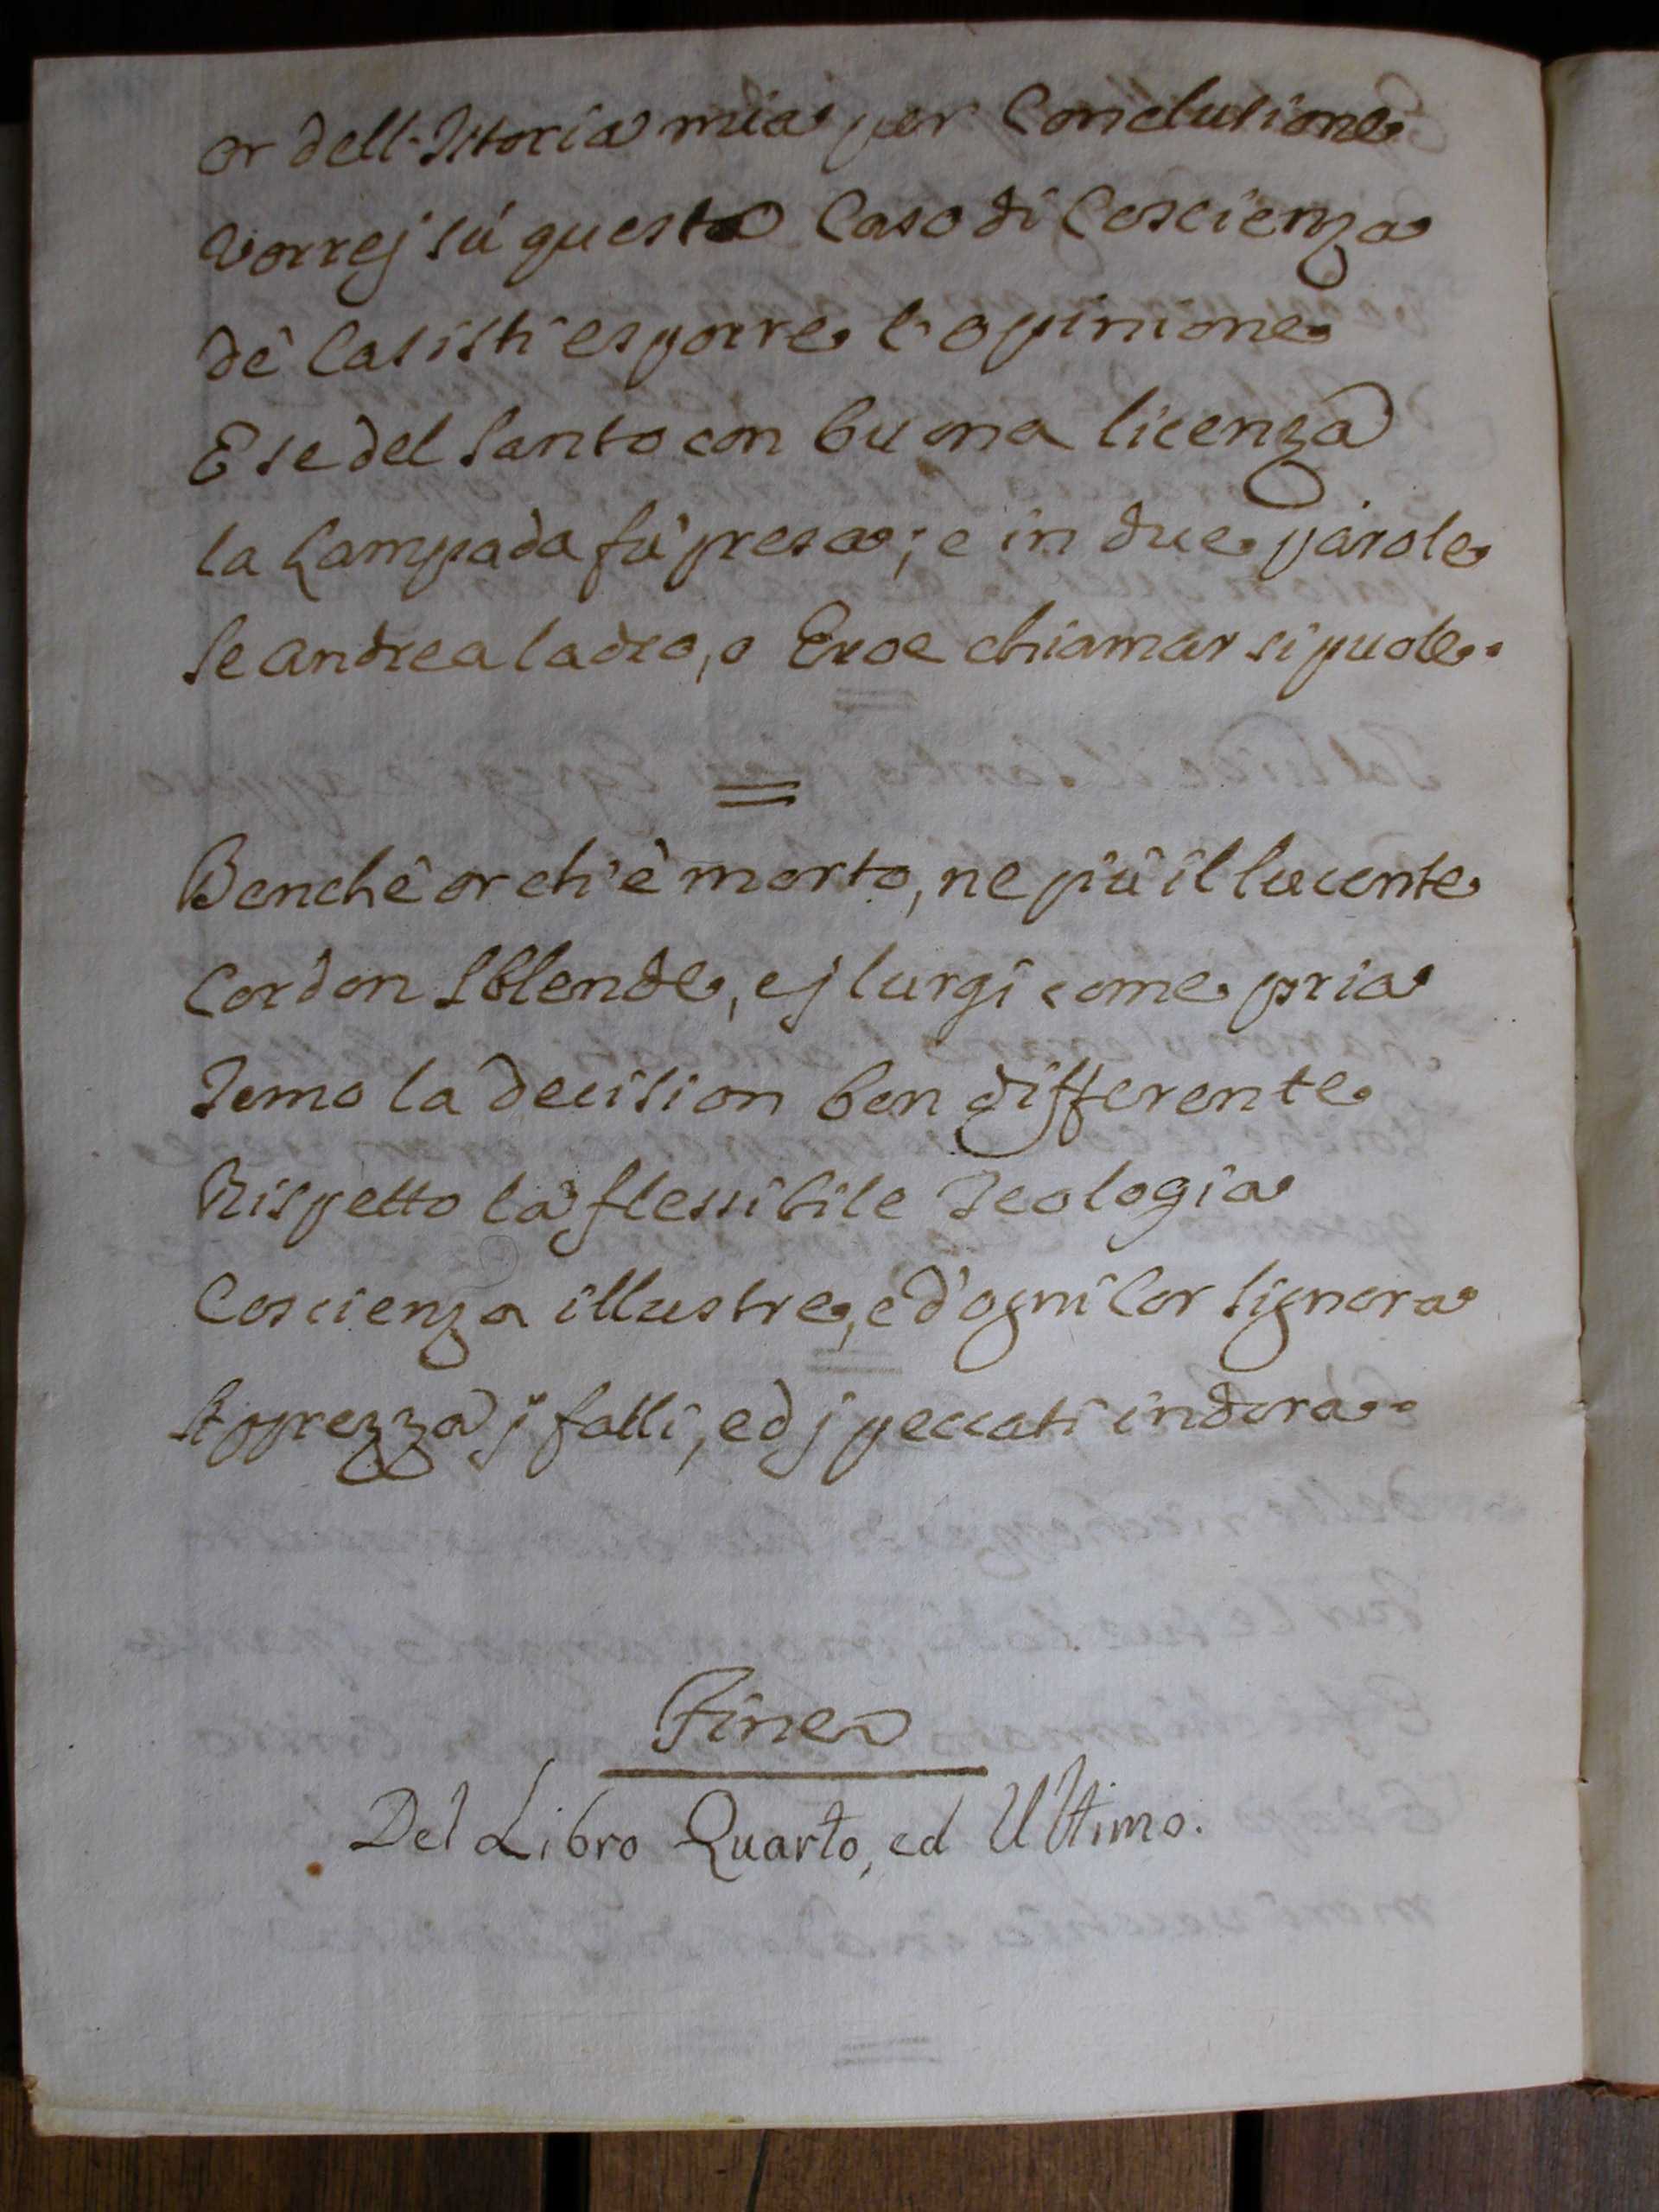 or dell'Istoria mia per Conclusione
Vorrej sú questo Caso di Coscienza
dè Casisti esporre l'opinione
E se del Santo con buona licenza
la Lampada fù presa; e in due parole
Se Andrea ladro, o Eroe chiamar si puole.
=
Benchè or ch'è morto, ne più il lucente
Cordon Splende, ej surgi come pria
Temo la decision ben differente
Rispetto la flessibile Teologia
Coscienza illustre, e d'ogni Cor Signora
Apprezza j falli, ed j peccati indora.
Fine
Del Libro Quarto, ed Ultimo.